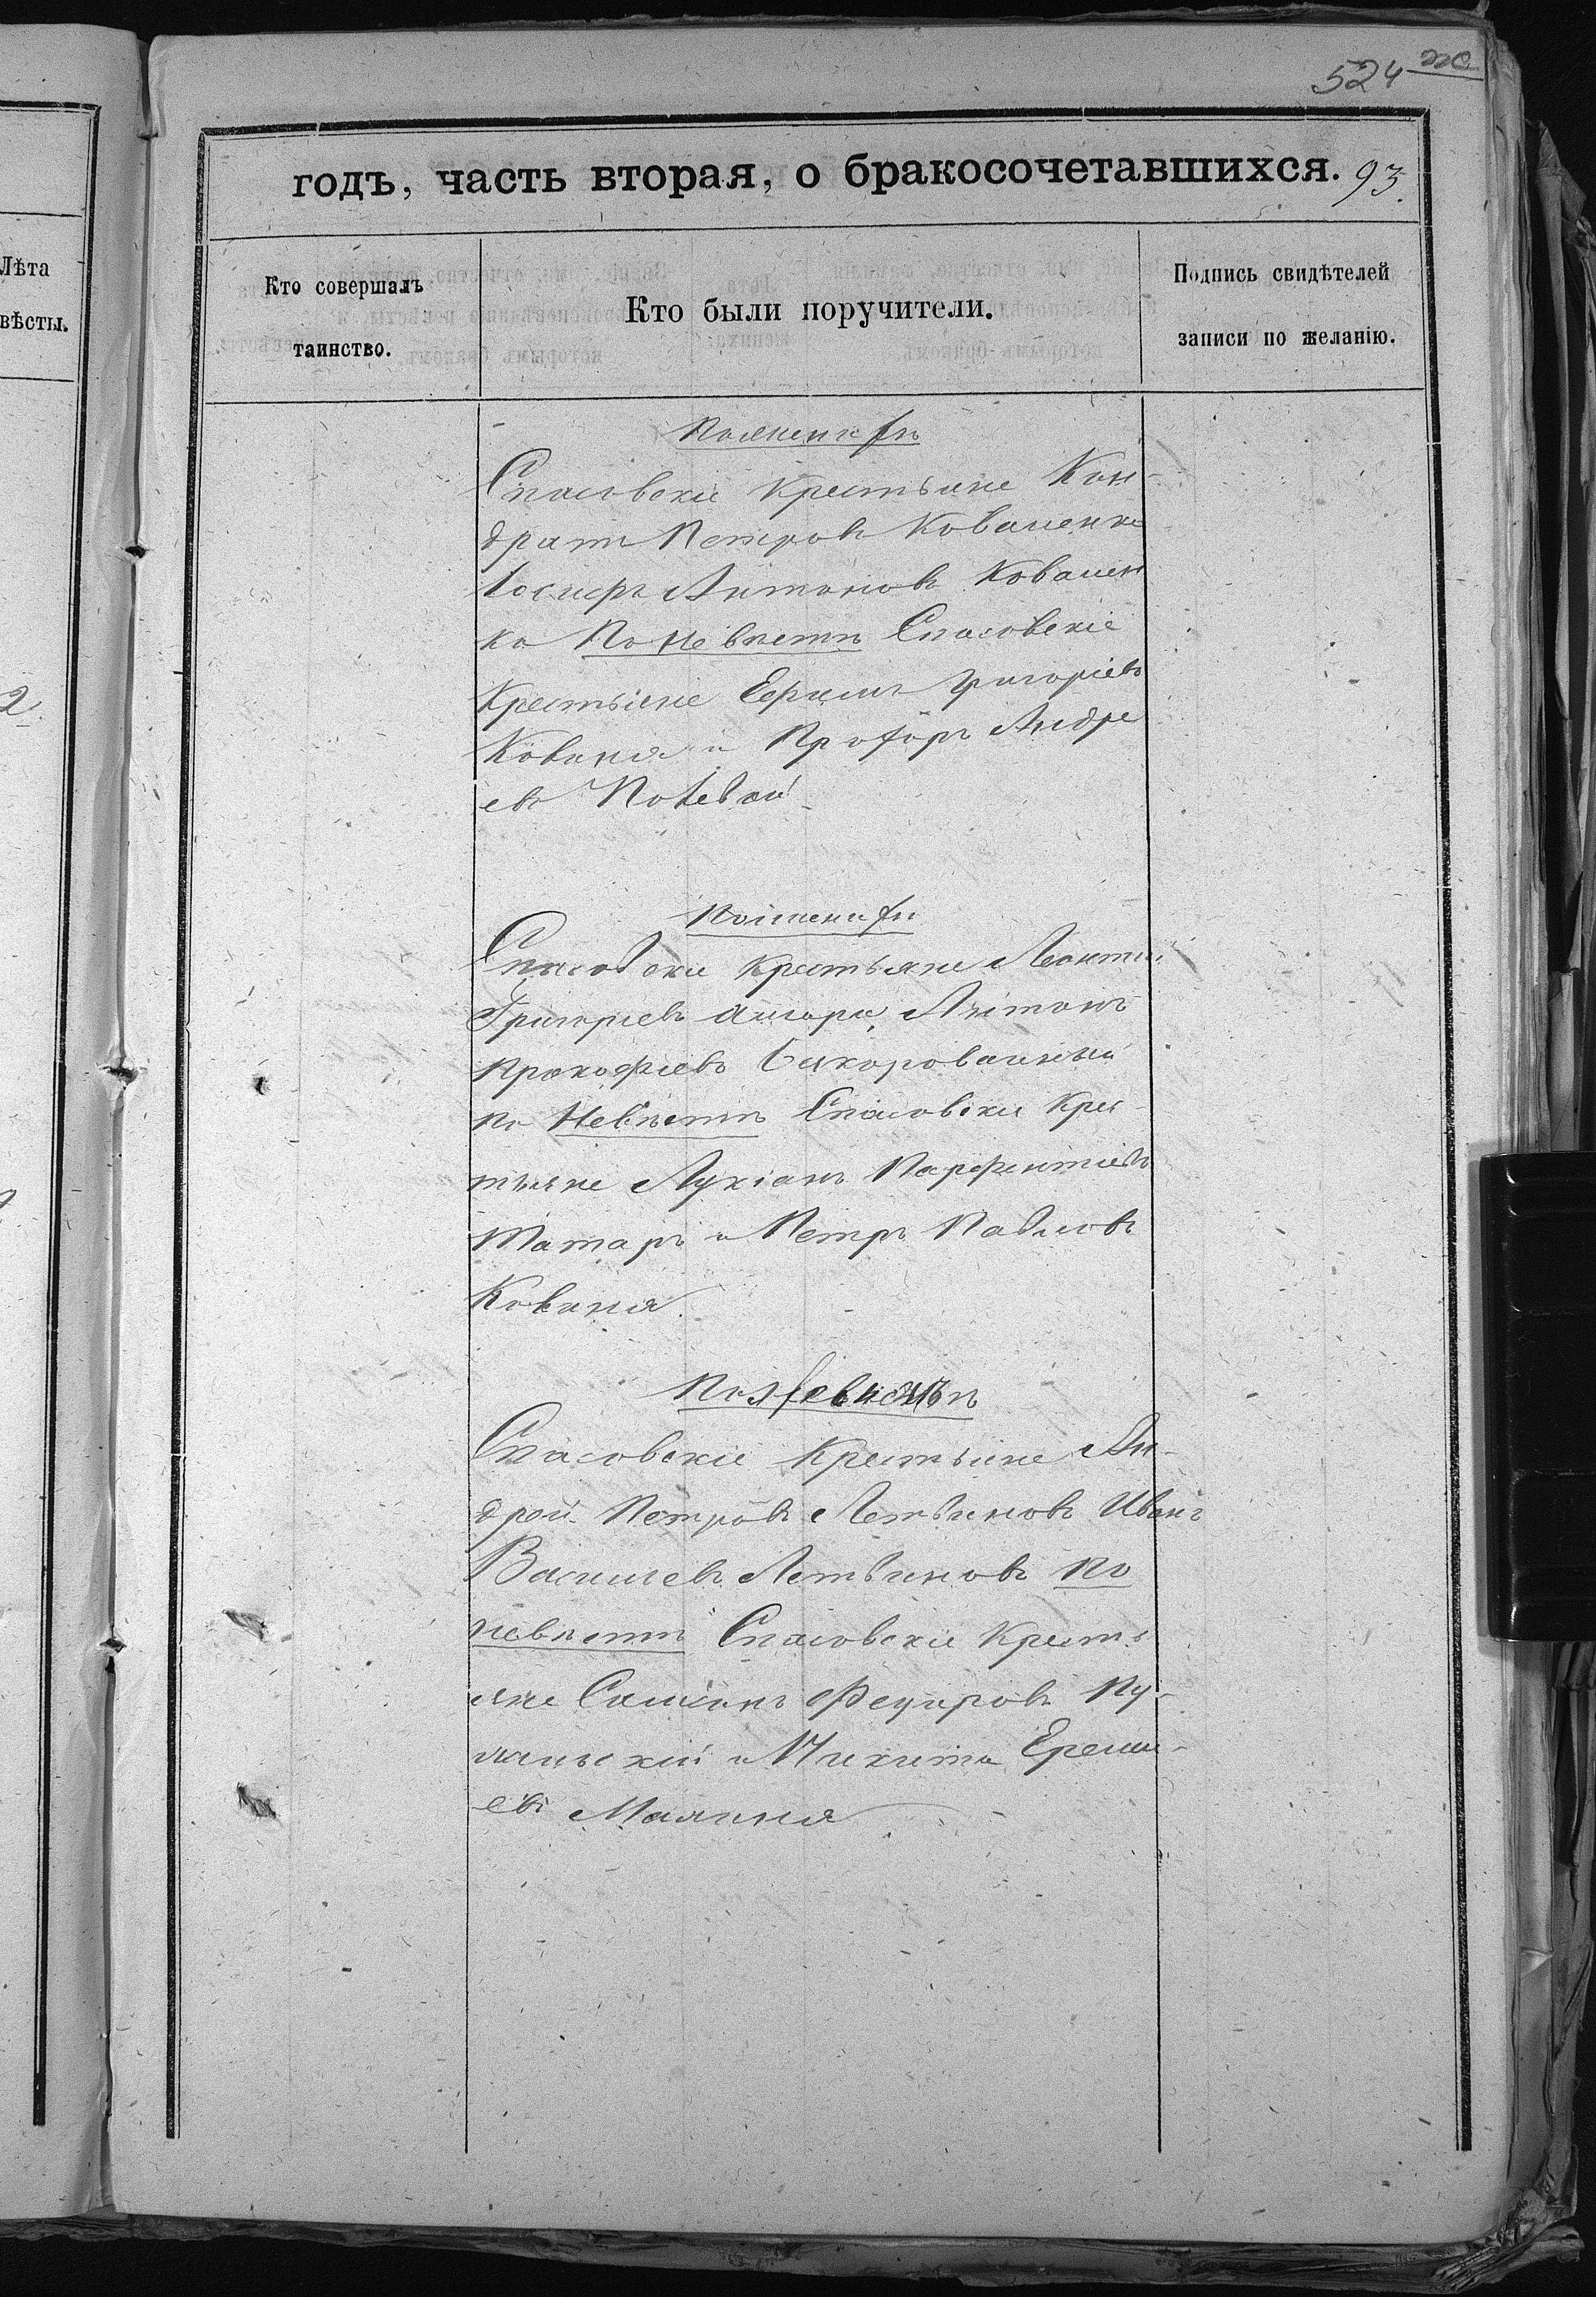 524
годъ, часть вторая, о бракосочетавшихся. 93.
Лѣта
вѣсты.
Кто совершалъ
таинство.
Кто были поручители.
Подпись свидѣтелей
записи по желанію.
2
По женихѣ
Спасовскіе крестьяне Кон-
дратъ Петровъ Коваленко
Іосифъ Антоновъ Ковален
ко По невѣстѣ Спасовскіе
Крестьяне Ефимъ Григоріевъ
Ковиня и Прохоръ Андре
евъ Полевой
По женихѣ
Спасовскіе крестьяне Леонтій
Григоріевъ Антонъ
Прокофіевъ
по Невѣстѣ Спасовскіе Крес
тьяне Лукіанъ Парфентіевъ
Татаръ и Петръ Павловъ
Ковиня.
Спасовскіе Крестьяне Ан-
дрей Петровъ Литвиновъ Иванъ
Васильевъ Литвиновъ по
невѣстѣ Спасовскіе Кресть
яне Феодоровъ
и Никита Ереме-
евъ Малиня